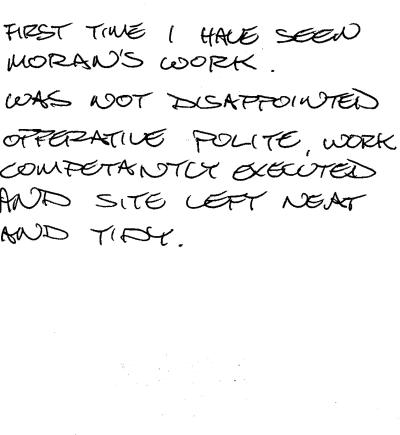 FIRST TIME I HAVE SEEN
MORAN'S WORK.
WAS NOT DISAPPOINTED
OPPERATIVE POLITE, WORK
COMPETANTLY EXECUTED
AND SITE LEFT NEAT
AND TIDY.